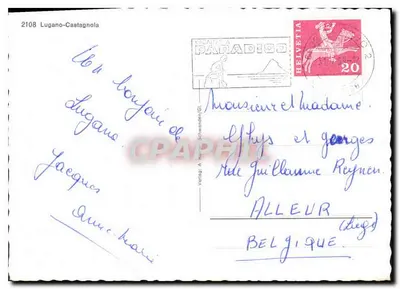 2108 Lugano-Castagnola
PARADISO
HELVETIA
20
Un bonjour de
Lugano.
Jacques
Anne-Marie
Monsieur et Madame
Ghys et georges
rue Guillaume
ALLEUR
(Liège)
BELGIQUE.
CPARAMA